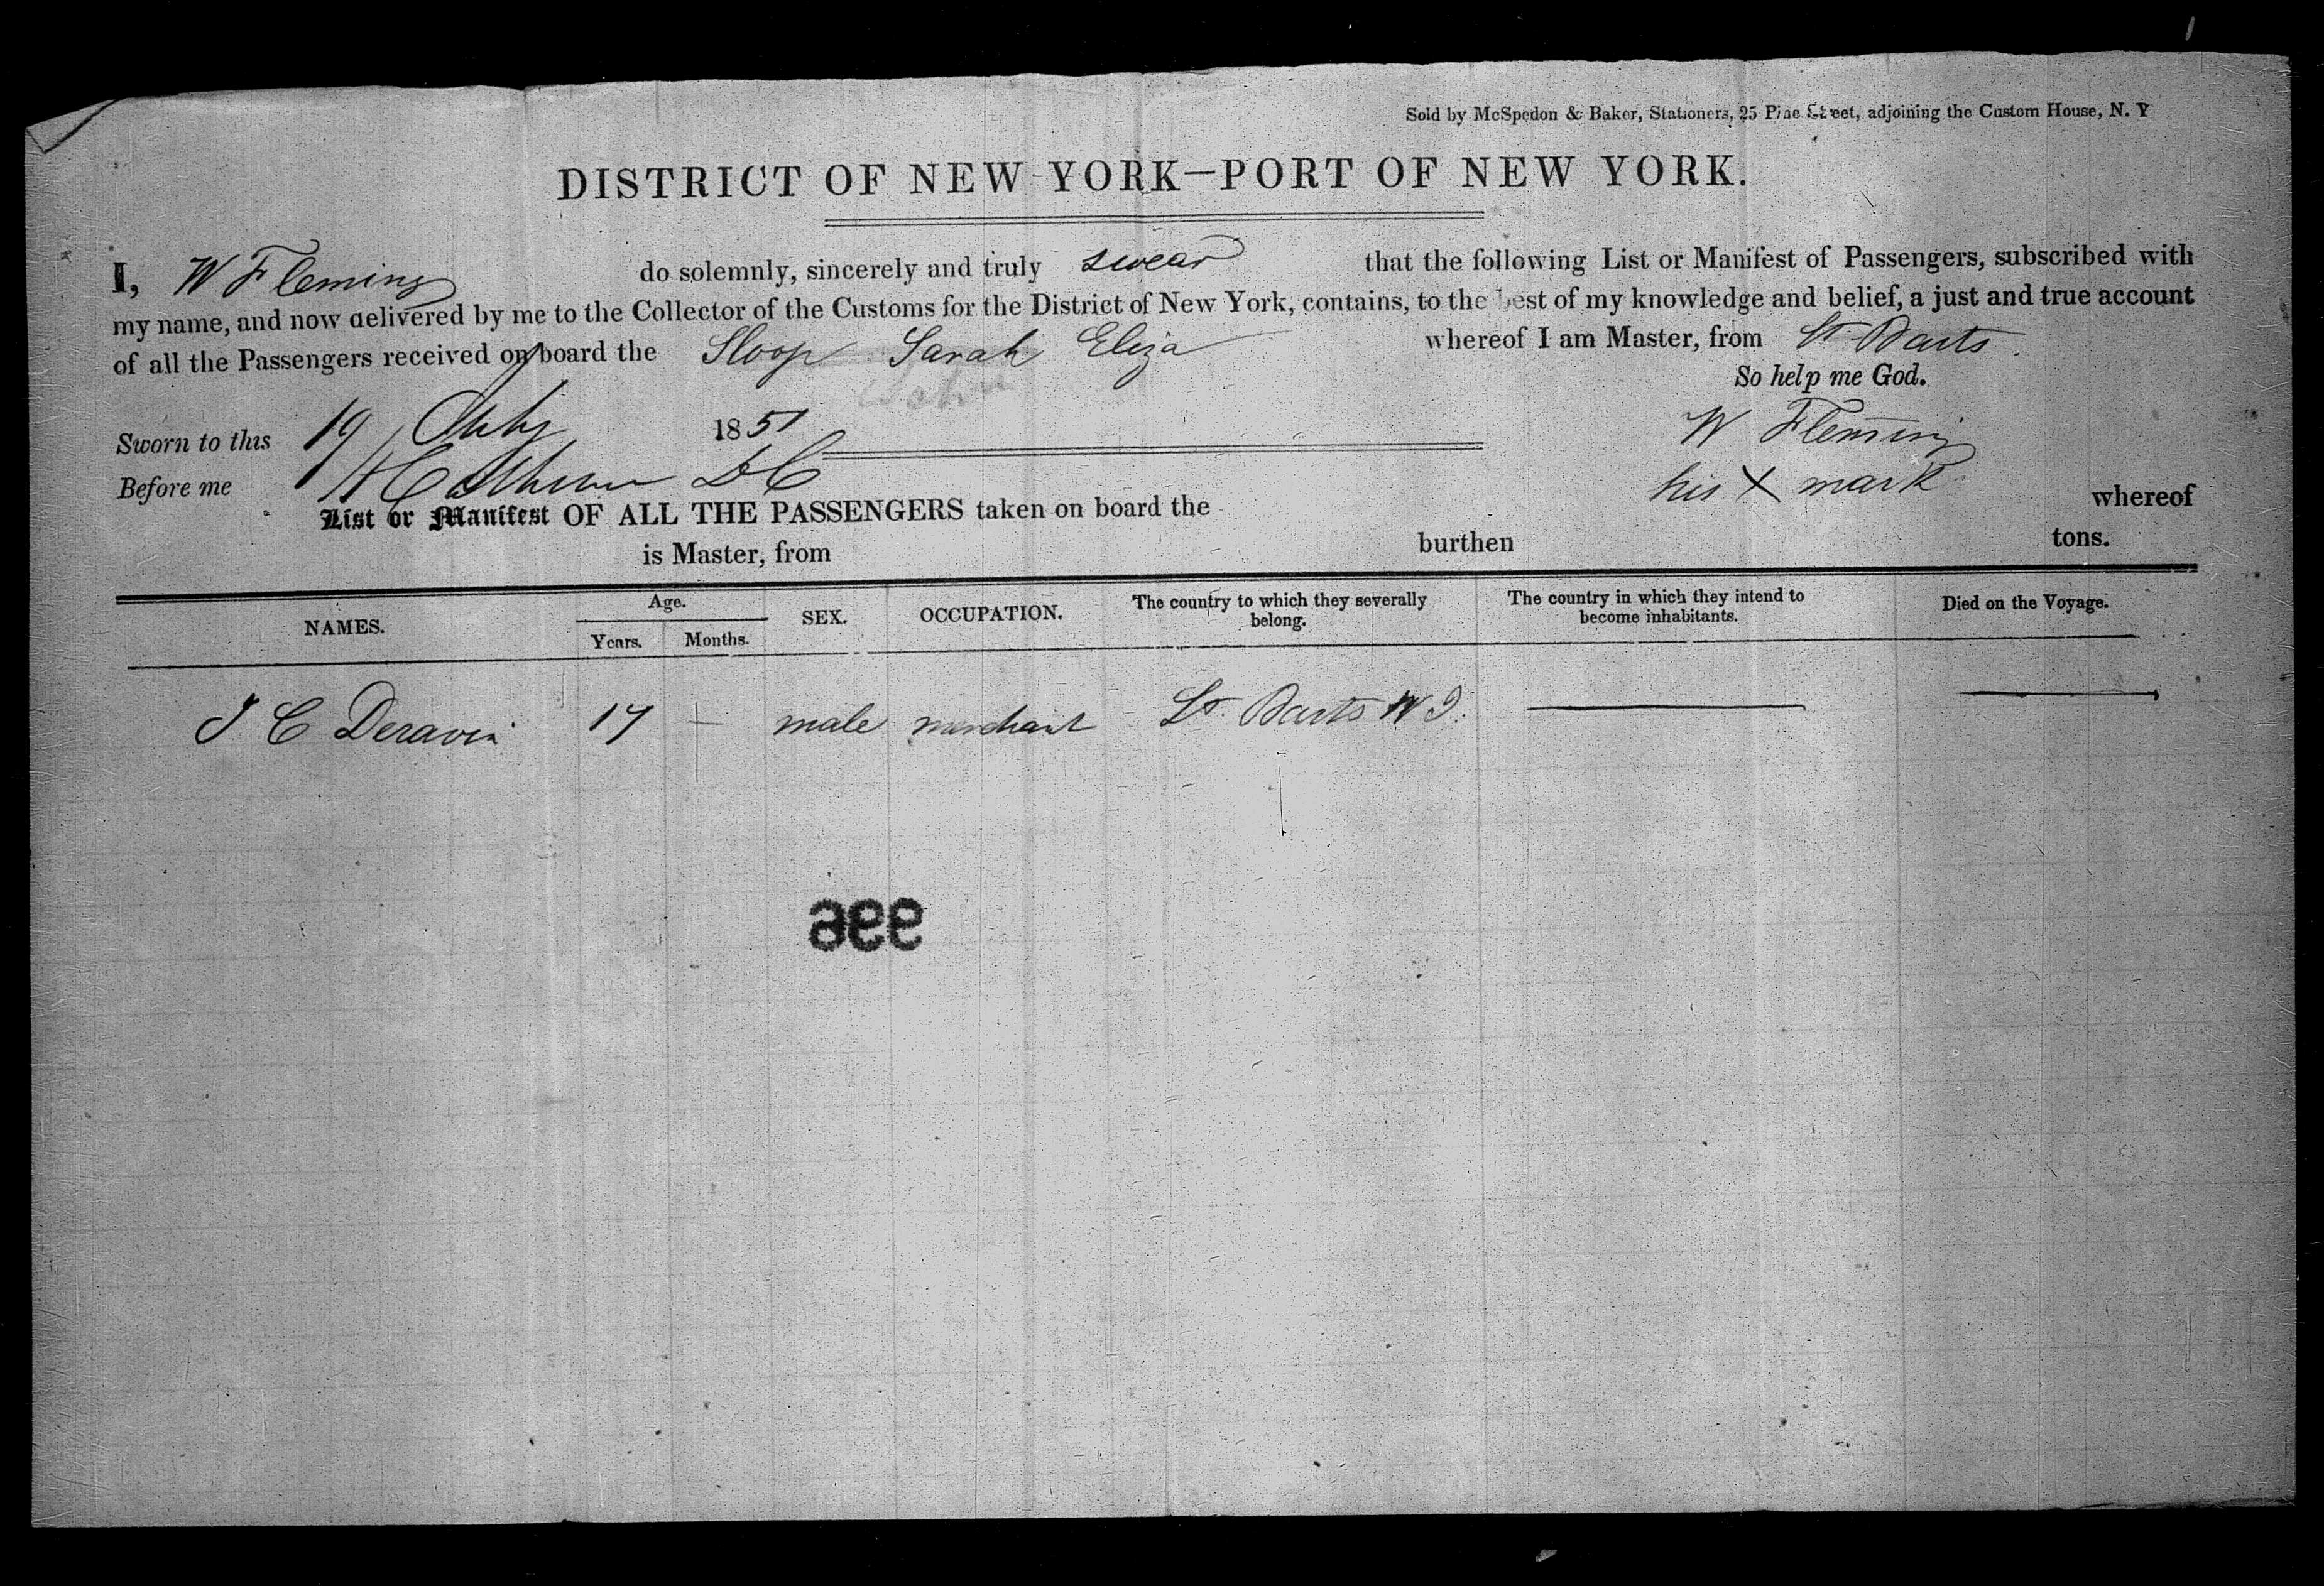 Sold by McSpedon & Baker, Stationers, 25 Pine Street, adjoining the Custom House, N. Y
DISTRICT OF NEW YORK—PORT OF NEW YORK.
I, W Fleming do solemnly, sincerely and truly swear that the following List or Manifest of Passengers, subscribed with
my name, and now delivered by me to the Collector of the Customs for the District of New York, contains, to the best of my knowledge and belief, a just and true account
of all the Passengers received on board the Sloop Sarah Eliza whereof I am Master, from St Barts.
So help me God.
Sworn to this 19 July 1851
W Fleming
Before me
his X mark
List or Manifest OF ALL THE PASSENGERS taken on board the whereof
is Master, from burthen tons.
NAMES. Age. Years. Months. SEX. OCCUPATION. The country to which they severally belong. The country in which they intend to become inhabitants. Died on the Voyage.
J C Deravin 17 male merchant St. Barts W I.